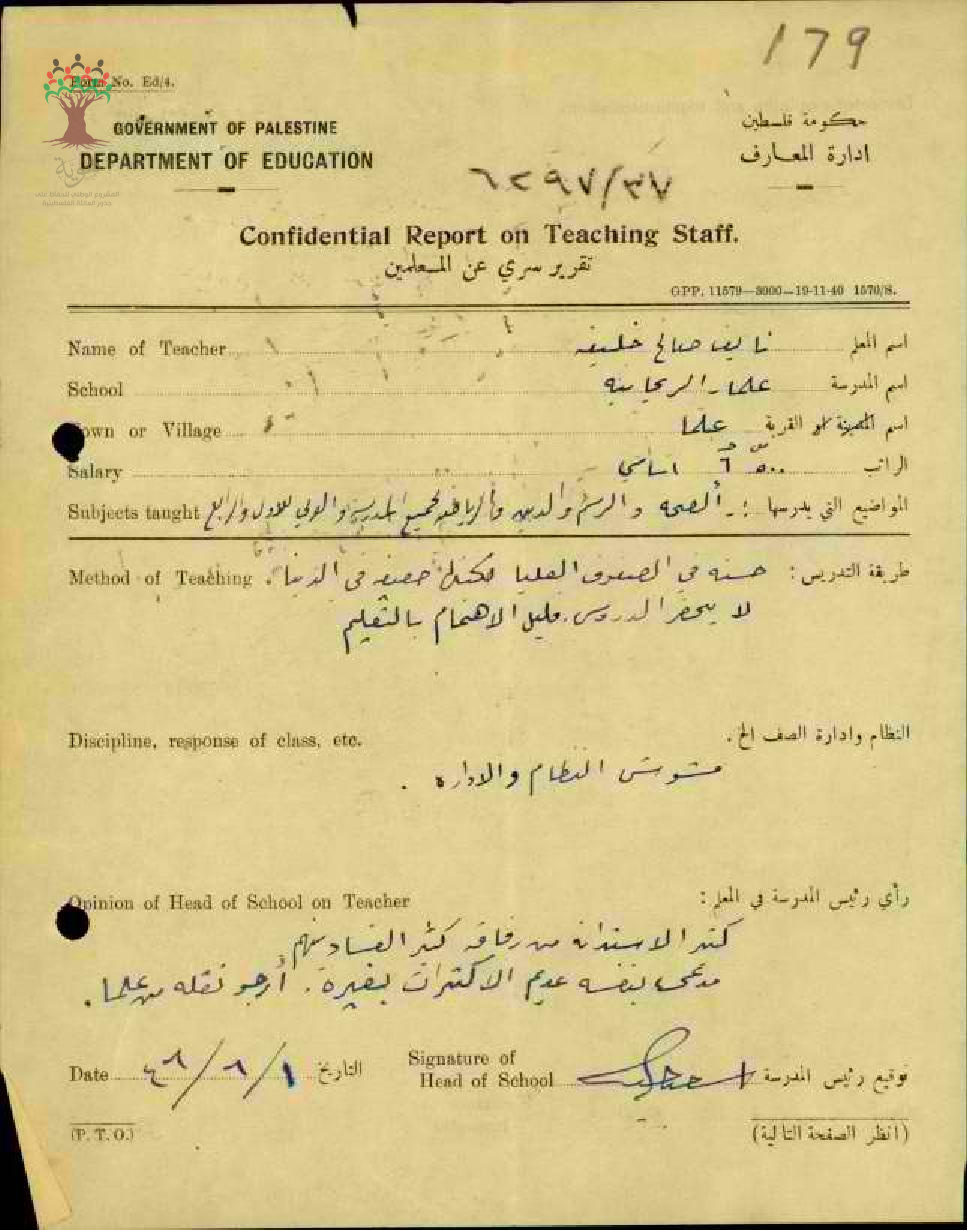 179
Form No. Ed/4.
GOVERNMENT OF PALESTINE
DEPARTMENT OF EDUCATION
حكومة فلسطين
ادارة المعارف
٦٢٩٧/٣٧
Confidential Report on Teaching Staff.
تقرير سري عن المعلمين
GPP. 11579—3000—19-11-40 1570/S.
Name of Teacher نايف صالح خليفه اسم المعلم
School علما - الريحانيه اسم المدرسة
Town or Village علما اسم المدينة او القرية
Salary ٥٠٠ ٦ اساسي الراتب
Subjects taught الصحه و الرسم والدين والرياضه لجميع المدرسة و العربي للاول والرابع المواضيع التي يدرسها :
Method of Teaching حسنه في الصفوف العليا ضعيفه في الدنيا . طريقة التدريس :
لا يحضر الدروس . قليل الاهتمام بالتعليم
Discipline, response of class, etc. النظام وادارة الصف الخ .
مشوش النظام والاداره .
Opinion of Head of School on Teacher رأي رئيس المدرسة في المعلم :
كثير الاستدانة من رفاقه كثير الفساد بينهم
بنفسه عديم الاكتراث بغيره . أرجو نقله من علما .
Date ١/٦/ التاريخ Signature of Head of School توقيع رئيس المدرسة
(P. T. O.) (انظر الصفحة التالية)